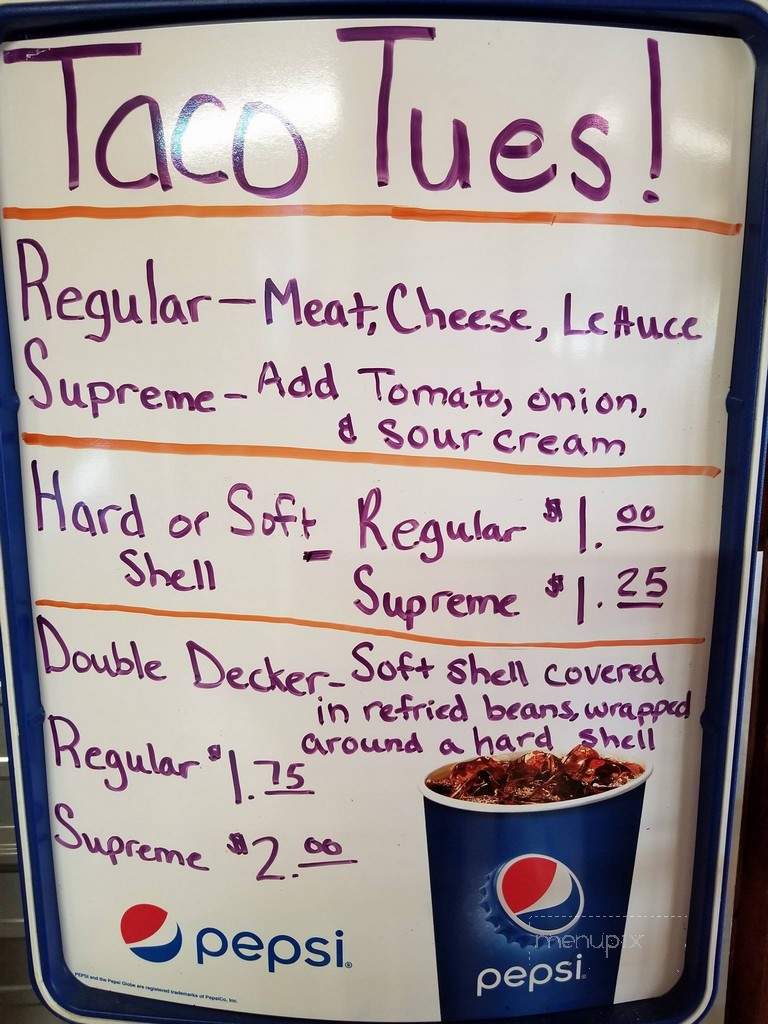 Taco Tues!
Regular - Meat, Cheese, Lettuce
Supreme - Add Tomato, onion,
& sour cream
Hard or Soft - Regular $1.00
Shell
Supreme $1.25
Double Decker - Soft shell covered
in refried beans, wrapped
around a hard shell
Regular $1.75
Supreme $2.00
pepsi®
menupix
pepsi
PEPSI and the Pepsi Globe are registered trademarks of PepsiCo, Inc.